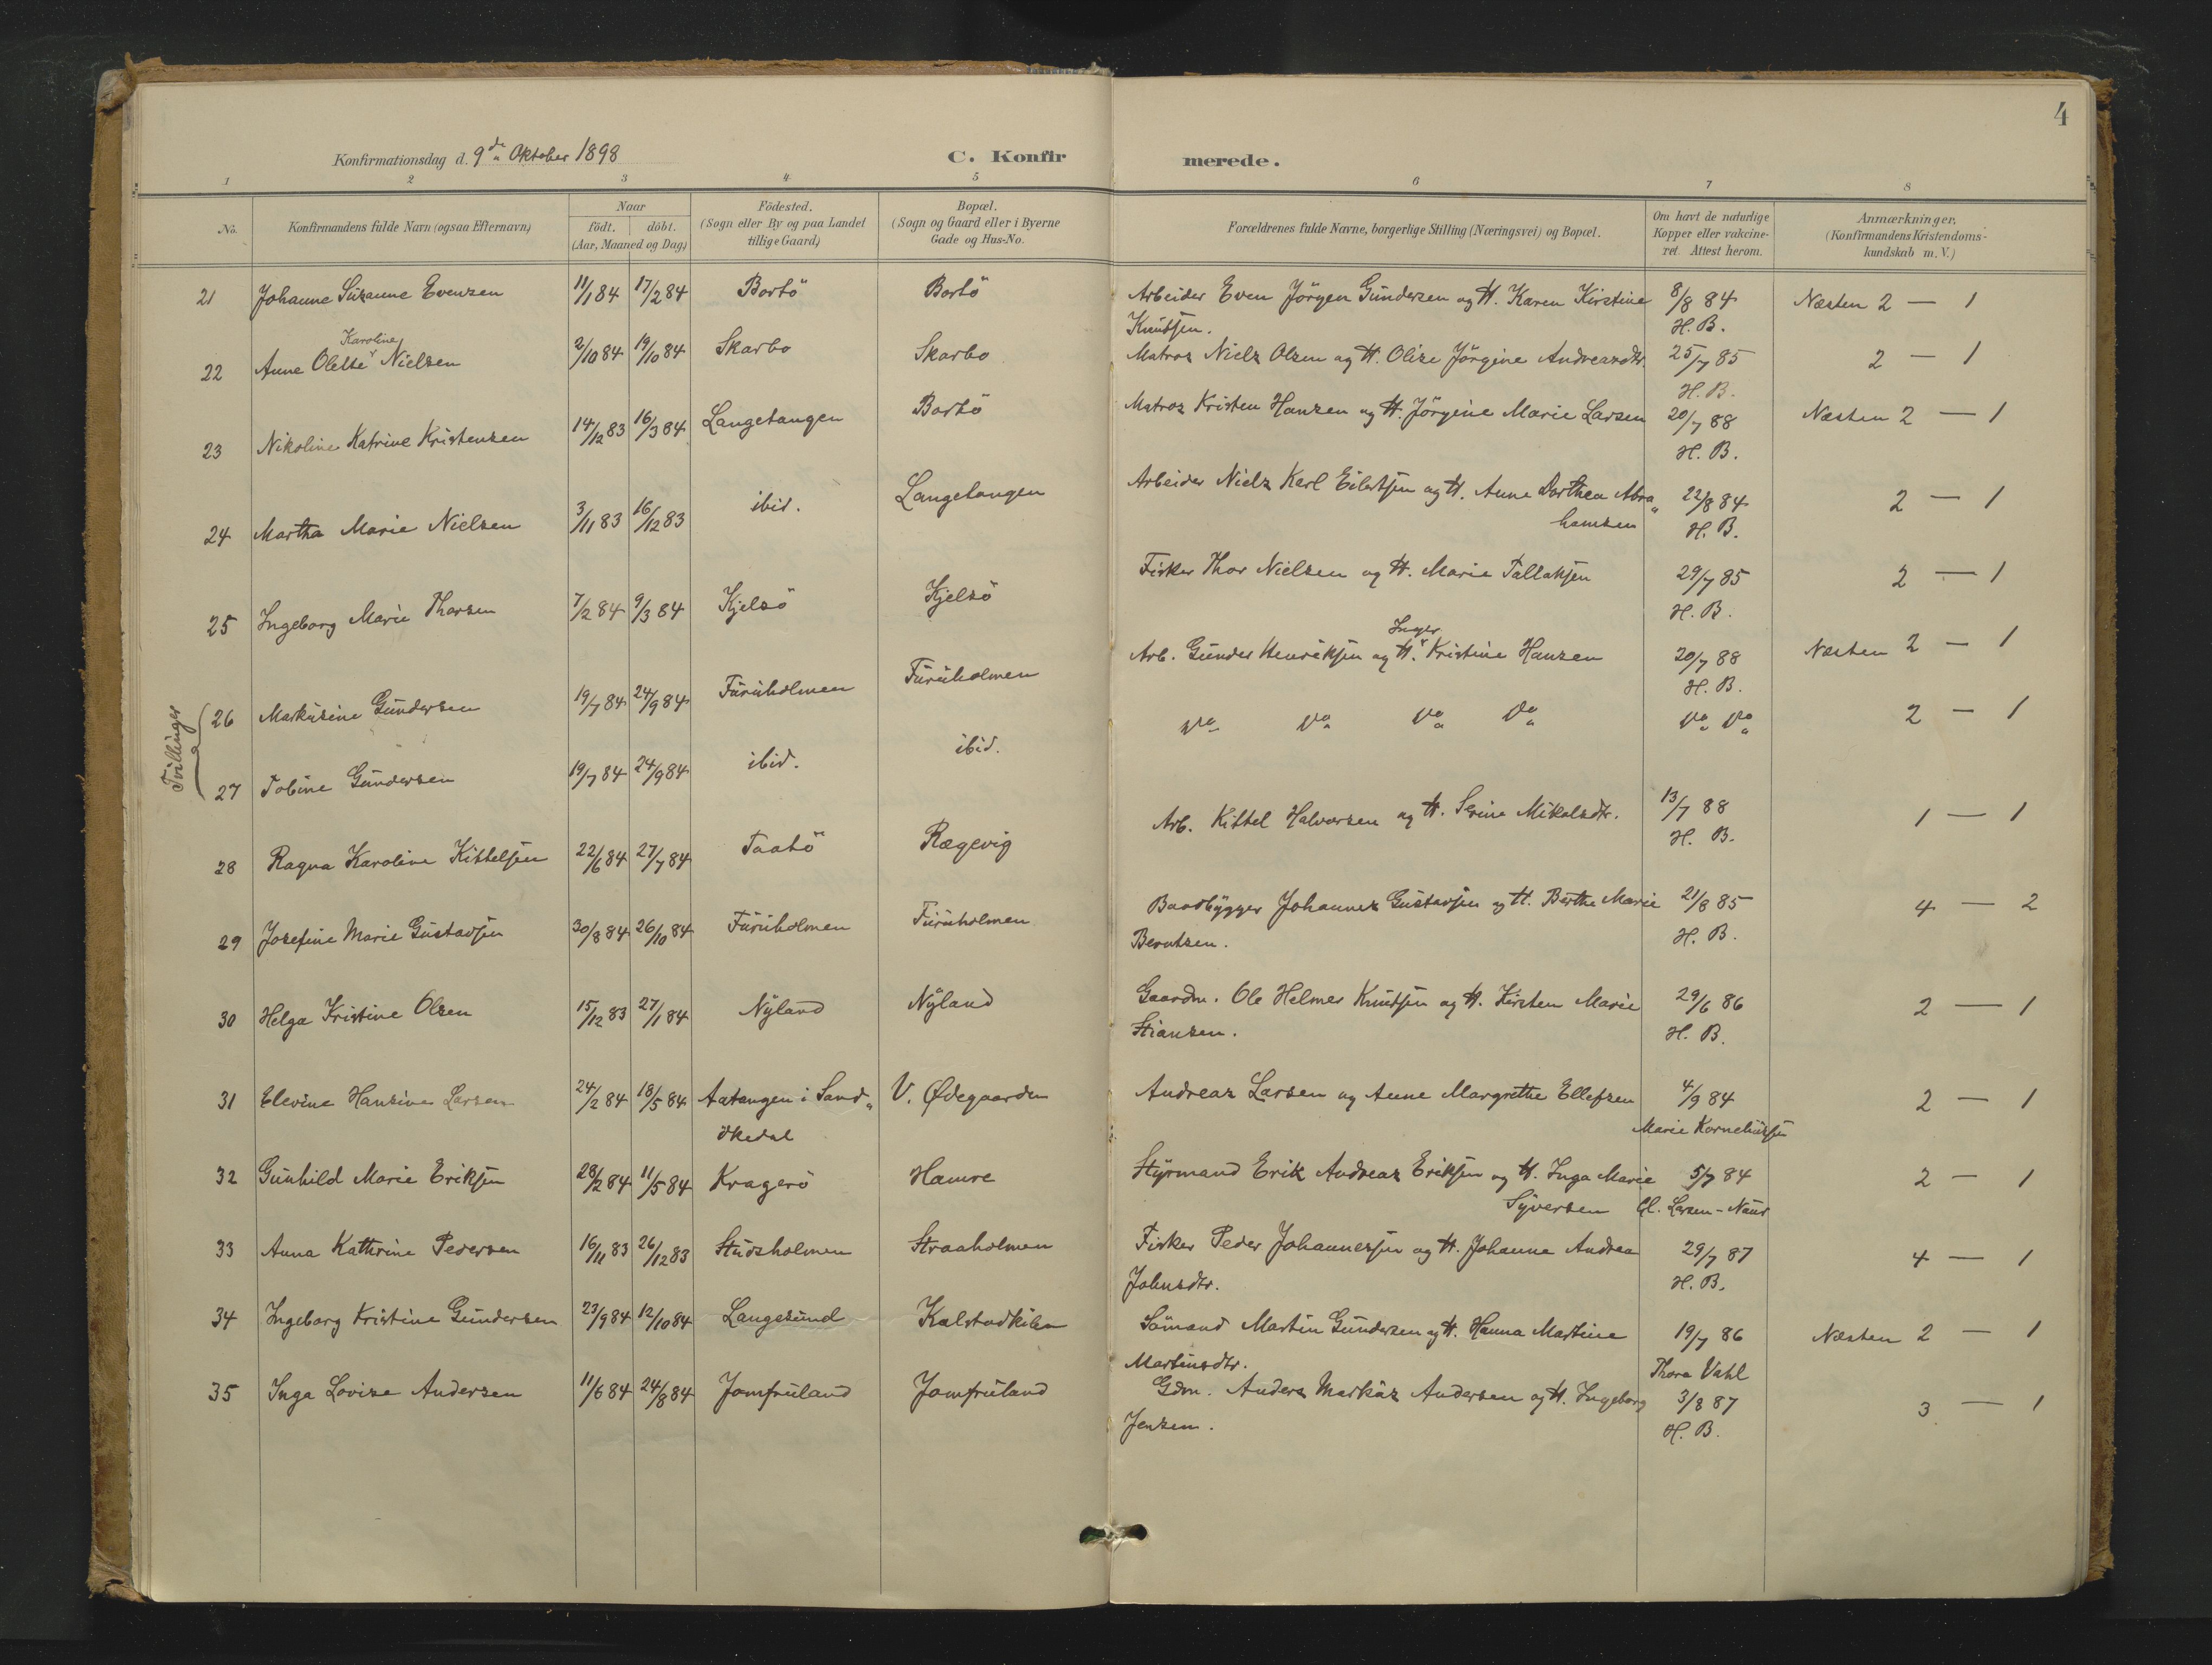 4
Konfirmationsdag d. 9de Oktober 1898 C. Konfirmerede.
1 2 3 4 5 6 7 8
No. Konfirmandens fulde Navn (ogsaa Efternavn) Naar födt. döbt. (Aar, Maaned og Dag) Födested. (Sogn eller By og paa Landet tillige Gaard) Bopæl. (Sogn og Gaard eller i Byerne Gade og Hus-No. Forældrenes fulde Navne, borgerlige Stilling (Næringsvei) og Bopæl. Om havt de naturlige Kopper eller vakcineret. Attest herom. Anmærkninger. (Konfirmandens Kristendomskundskab m. V.)
21 Johanne Susanne Evensen 11/1 84 17/2 84 Bortö Bortö Arbeider Even Jörgen Gundersen og H. Karen Kirstine 8/8 84 Næsten 2 — 1
Knutsen. H. B.
22 Anne Olette Karoline Nielsen 2/10 84 19/10 84 Skarbo Skarbo Matros Niels Olsen og H. Olise Jörgine Andreasdtr. 25/7 85 2 — 1
H. B.
23 Nikoline Katrine Kristensen 14/12 83 16/3 84 Langetangen Bortö Matros Kristen Hansen og H. Jörgine Marie Larsen 20/7 88 Næsten 2 — 1
H. B.
24 Martha Marie Nielsen 3/11 83 16/12 83 ibid. Langetangen Arbeider Niels Karl Eilertsen og H. Anne Dorthea Abra„ 22/8 84 2 — 1
hamsen H. B.
25 Ingeborg Marie Thorsen 7/2 84 9/3 84 Kjelsö Kjelsö Fisker Thor Nielsen og H. Marie Tallaksen 29/7 85 2 — 1
H. B.
Tvillinger
26 Markusine Gundersen 19/7 84 24/9 84 Furuholmen Furuholmen Arb. Gunder Henriksen og H. Inger Kristine Hansen 20/7 88 Næsten 2 — 1
H. B.
27 Tobine Gundersen 19/7 84 24/9 84 ibid. ibid. Do Do Do Do Do Do 2 — 1
28 Ragna Karoline Kittelsen 22/6 84 27/7 84 Taatö Rægevig Arb. Kittel Halvorsen og H. Serine Mikalsdtr. 13/7 88 1 — 1
H. B.
29 Josefine Marie Gustavsen 30/8 84 26/10 84 Furuholmen Furuholmen Baadbygger Johannes Gustavsen og H. Berthe Marie 21/8 85 4 — 2
Berntsen. H. B.
30 Helga Kristine Olsen 15/12 83 27/1 84 Nyland Nyland Gaardm. Ole Helmer Knutsen og H. Kirsten Marie 29/6 86 2 — 1
Stiansen. H. B.
31 Elevine Hansine Larsen 24/2 84 18/5 84 Aatangen i Sand„ V. Ødegaarden Andreas Larsen og Anne Margrethe Ellefsen 4/9 84 2 — 1
ökedal Marie Korneliussen
32 Gunhild Marie Eriksen 28/2 84 11/5 84 Kragerö Hamre Styrmand Erik Andreas Eriksen og H. Inga Marie 5/7 84 2 — 1
Syversen Cl. Larsen-Naur
33 Anna Kathrine Pedersen 16/11 83 26/12 83 Studsholmen Straaholmen Fisker Peder Johannessen og H. Johanne Andrea 29/7 87 4 — 1
Johnsdtr. H. B.
34 Ingeborg Kristine Gundersen 23/9 84 12/10 84 Langesund Kalstadkilen Sömand Martin Gundersen og H. Hanna Martine 19/7 86 Næsten 2 — 1
Martinsdtr. Thora Vahl
35 Inga Lovise Andersen 11/6 84 24/8 84 Jomfruland Jomfruland Gdm. Anders Markus Andersen og H. Ingeborg 3/8 87 3 — 1
Jensen. H. B.